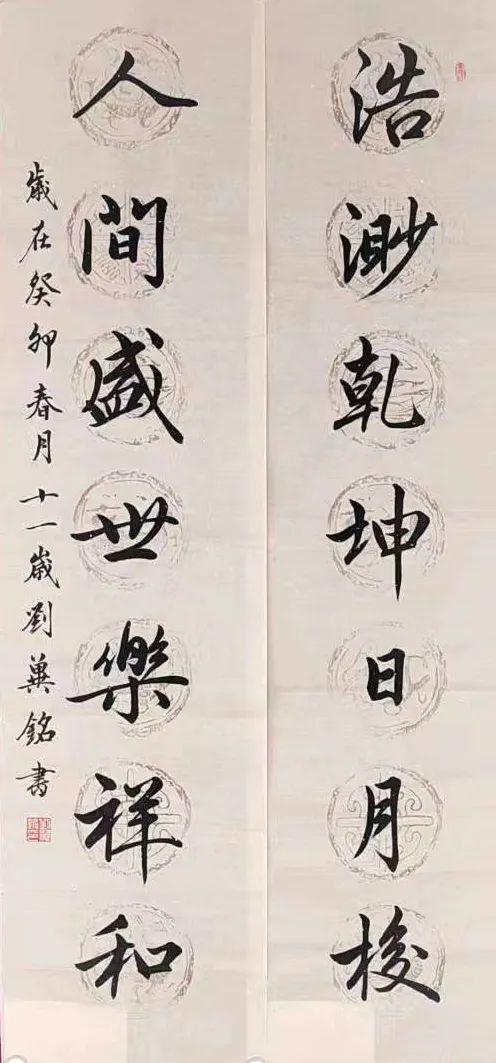 浩渺乾坤日月梭
人間盛世樂祥和
歲在癸卯春月十一歲劉冀銘書